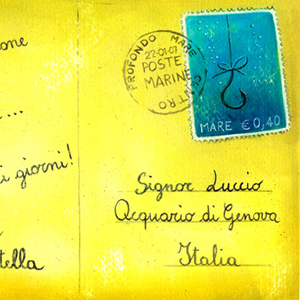 one
...
i giorni!
tella
PROFONDO MARE CENTRO
22-01-07
POSTE
MARINE
MARE € 0,40
Signor Luccio
Acquario di Genova
Italia